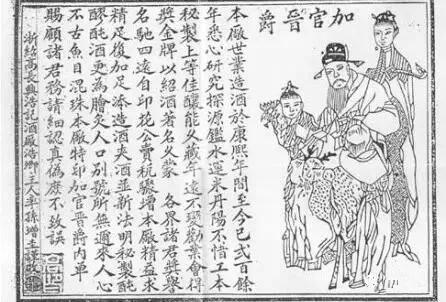 加官晉爵
本廠世業造酒於康熙年間至今已弍百餘
年悉心研究探源鑑水運來丹陽不惜工本
秘製上等佳釀能久藏年遠不壞勸業會得
獎金牌以紹酒著名久蒙 各界諸君獎譽
名馳四遠自印花公賣稅驟增本廠精益求
精足復加足添造酒夾酒並新法明秘製
酒更為膾炙人口別號所無邇來人心
不古魚目混珠本廠特印加官晉爵內單
賜顧諸君務請細認真偽庶不致誤
浙紹高長興浩記酒廠浩卿主人率孫增圭謹啟